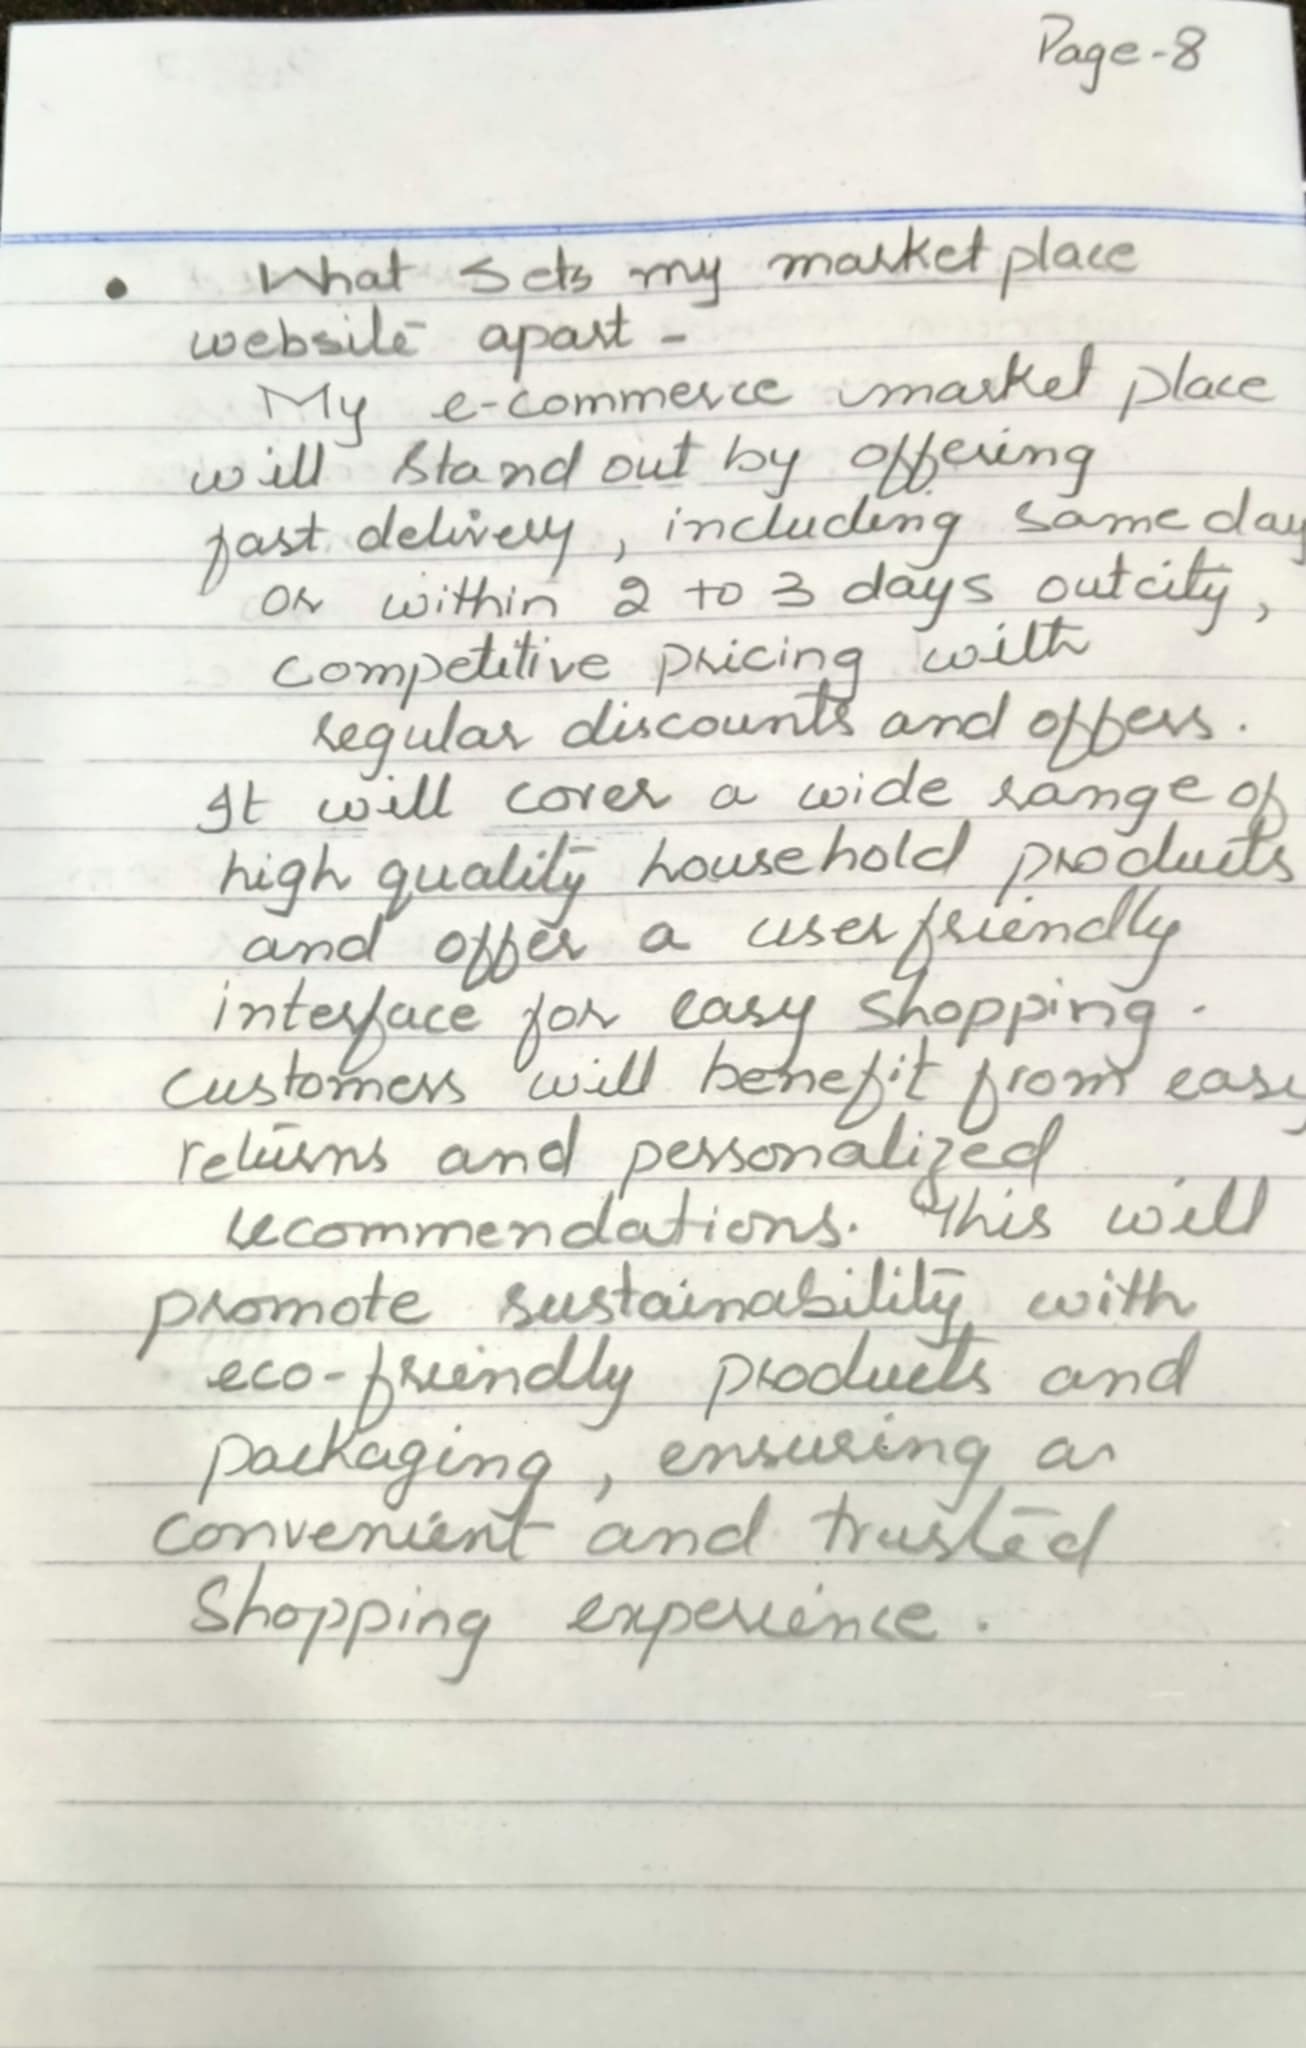 Page-8
• What sets my market place
website apart -
My e-commerce market place
will stand out by offering
fast delivery, including same day
or within 2 to 3 days outcity,
competitive pricing with
regular discounts and offers.
It will cover a wide range of
high quality household products
and offer a user friendly
interface for easy shopping.
Customers will benefit from easy
returns and personalized
recommendations. This will
promote sustainability with
eco-friendly products and
packaging, ensuring a
convenient and trusted
Shopping experience.